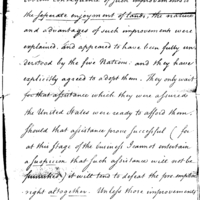 the separate enjoyment of lands, the nature
and advantages of such improvement were
explained, and appeared to have been fully un-
derstood by the five Nations. and they have
explicitly agreed to adopt them. They only wait
for that assistance which they were assured
the United States were ready to afford them.
Should that assistance prove successful (for
at this stage of the business I cannot entertain
a suspicion that such assistance will not be
furnished) it will tend to defeat the pre-emption
right altogether. Unless those improvements